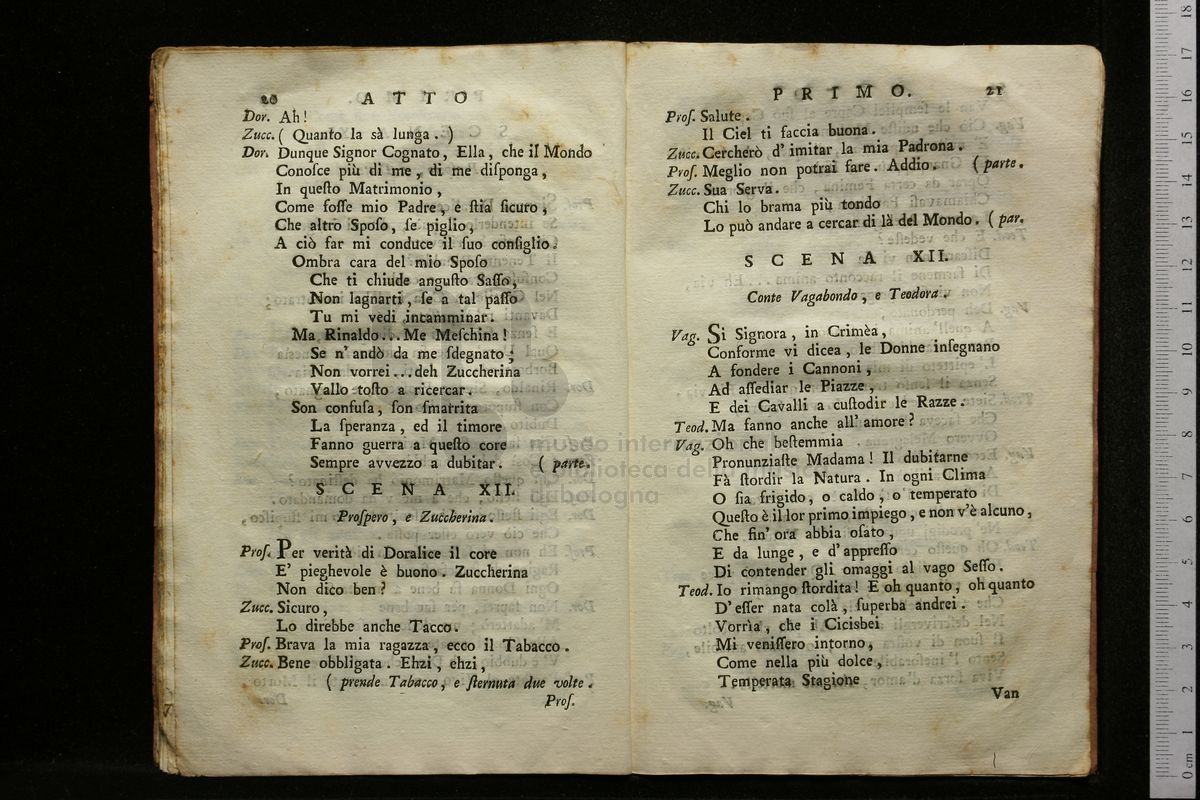 20 ATTO
Dor. Ah!
Zucc. ( Quanto la sà lunga. )
Dor. Dunque Signor Cognato, Ella, che il Mondo
Conoſce più di me, di me diſponga,
In queſto Matrimonio,
Come foſſe mio Padre, e ſtia ſicuro,
Che altro Spoſo, ſe piglio,
A ciò far mi conduce il ſuo conſiglio.
Ombra cara del mio Spoſo
Che ti chiude anguſto Saſſo,
Non lagnarti, ſe a tal paſſo
Tu mi vedi incamminar.
Ma Rinaldo... Me Meſchina!
Se n' andò da me ſdegnato;
Non vorrei... deh Zuccherina
Vallo toſto a ricercar.
Son confuſa, ſon ſmarrita
La ſperanza, ed il timore
Fanno guerra a queſto core
Sempre avvezzo a dubitar. ( parte.
SCENA XII.
Proſpero, e Zuccherina.
Proſ. Per verità di Doralice il core
E' pieghevole è buono. Zuccherina
Non dico ben?
Zucc. Sicuro,
Lo direbbe anche Tacco.
Proſ. Brava la mia ragazza, ecco il Tabacco.
Zucc. Bene obbligata. Ehzi, ehzi,
( prende Tabacco, e ſternuta due volte.
Proſ.
PRIMO. 21
Proſ. Salute.
Il Ciel ti faccia buona.
Zucc. Cercherò d' imitar la mia Padrona.
Proſ. Meglio non potrai fare. Addio. ( parte.
Zucc. Sua Serva.
Chi lo brama più tondo
Lo può andare a cercar di là del Mondo. ( par.
SCENA XII.
Conte Vagabondo, e Teodora.
Vag. Si Signora, in Crimèa,
Conforme vi dicea, le Donne inſegnano
A fondere i Cannoni,
Ad aſſediar le Piazze,
E dei Cavalli a cuſtodir le Razze.
Teod. Ma fanno anche all' amore?
Vag. Oh che beſtemmia
Pronunziaſte Madama! Il dubitarne
Fà ſtordir la Natura. In ogni Clima
O ſia frigido, o caldo, o temperato
Queſto è il lor primo impiego, e non v'è alcuno,
Che fin' ora abbia oſato,
E da lunge, e d' appreſſo
Di contender gli omaggi al vago Seſſo.
Teod. Io rimango ſtordita! E oh quanto, oh quanto
D' eſſer nata colà, ſuperba andrei.
Vorrìa, che i Cicisbei
Mi veniſſero intorno,
Come nella più dolce,
Temperata Stagione
Van